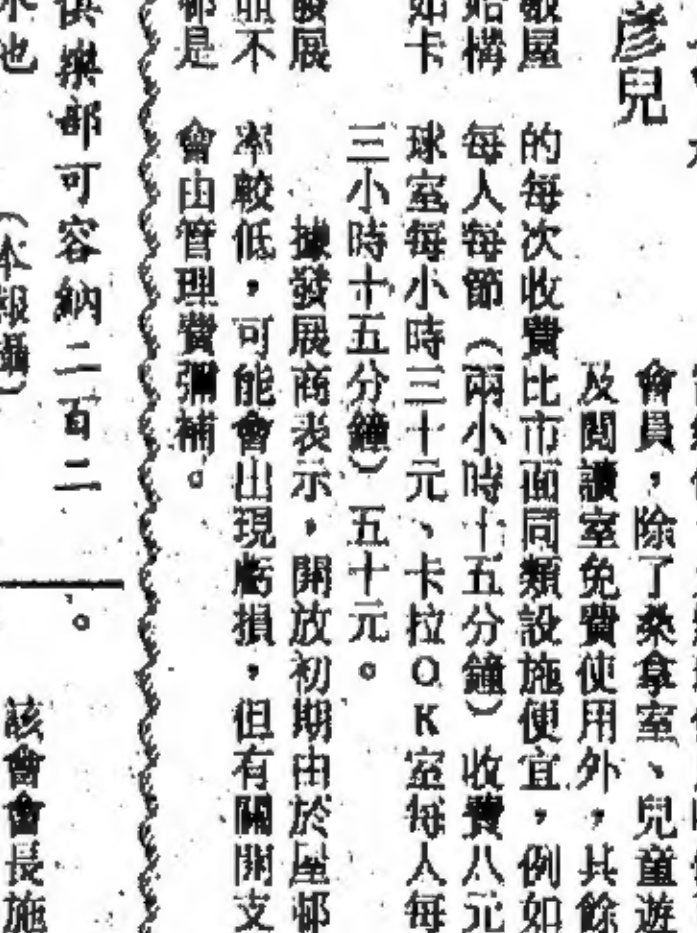 彥兒
屋
構
如卡
發展
不
都是
會員，除了桑拿室、兒童遊
及閱讀室免費使用外，其餘
的每次收費比市面同類設施便宜，例如
每人每節（兩小時十五分鐘）收費八元
球室每小時三十元、卡拉OK室每人每
三小時十五分鐘）五十元。
據發展商表示，開放初期由於屋邨
率較低，可能會出現虧損，但有關開支
會由管理費彌補。
俱樂部可容納二百二
也
（本報攝）
。
該會會長施